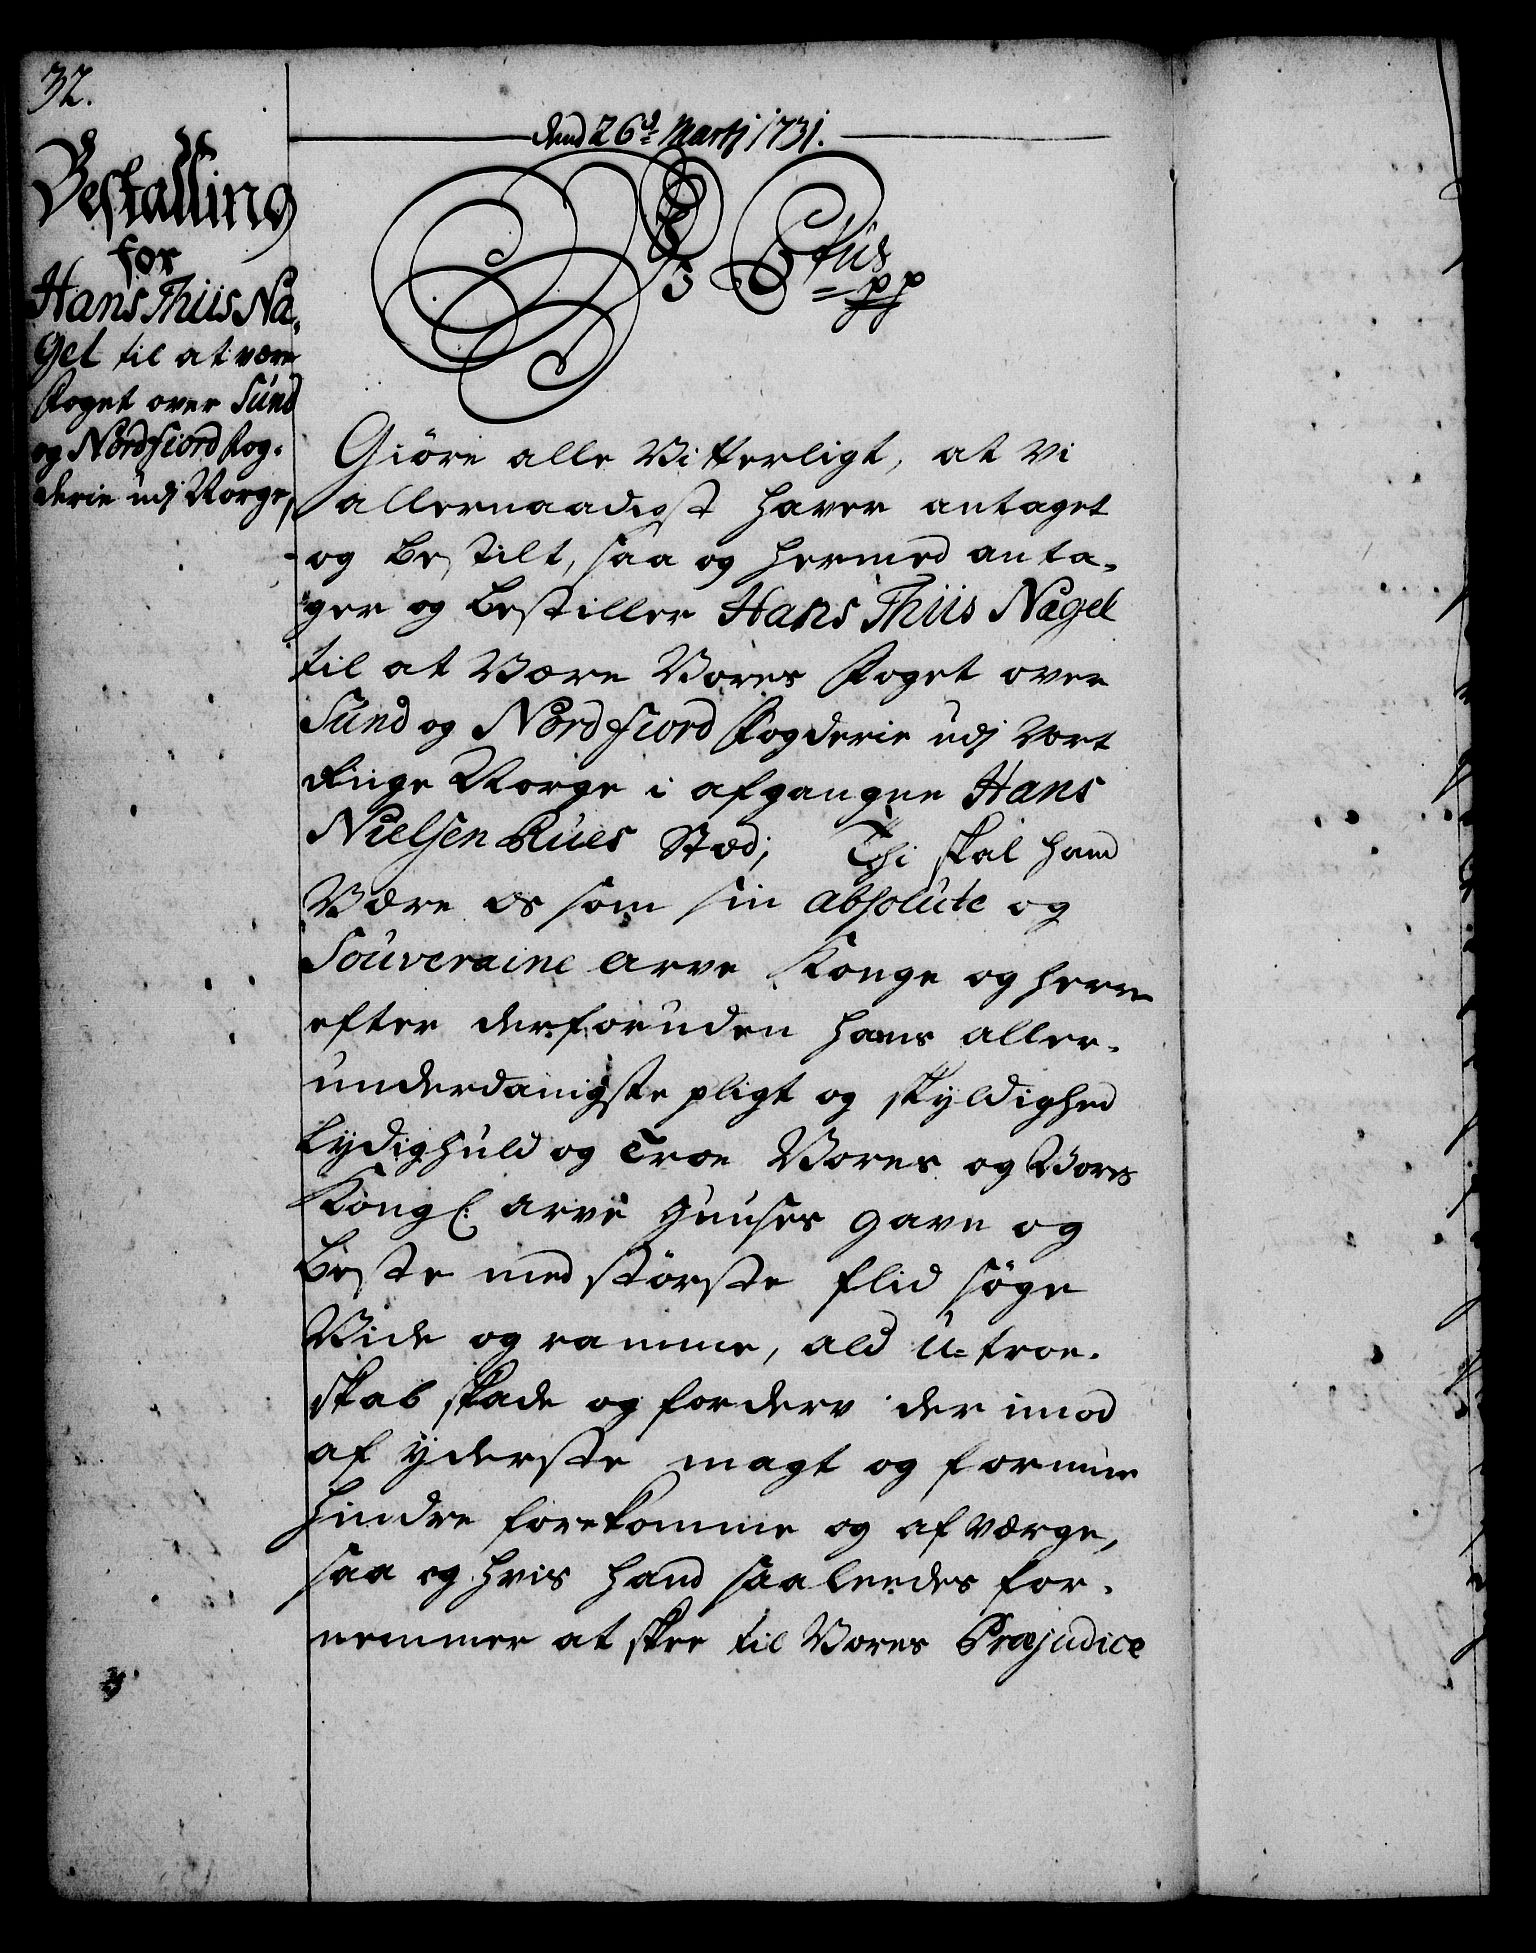 32.
Bestalling
for
Hans Thiis Na-
gel til at være
Foget over Sund
og Nordfiord Fog-
derie udj Norge,
dend 26d Martj 1731.
C 6tus
pp
Giöre alle Vitterligt, at Vi
allernaadigst haver antaget
og bestilt, saa og hermed anta-
ger og bestiller Hans Thiis Nagel
til at Være Vores Foget over
Sund og Nordfiord Fogderie udj Vort
Rige Norge i afgangne Hans
Nielsen Rues Stæd; Thi skal hand
Være os som sin absolute og
Souveraine arve Konge og herre
efter derforuden hans aller-
underdanigste pligt og skyldighed
lydig huld og troe Vores og Vores
Kongl: arve huuses gavn og
beste med störste flid söge
Vide og ramme, ald U-troe-
skab skade og forderv der imod
af yderste magt og formue
hindre forekomme og afværge,
saa og hvis hand saaledes for-
nemmer at skee til Vores Præjudice